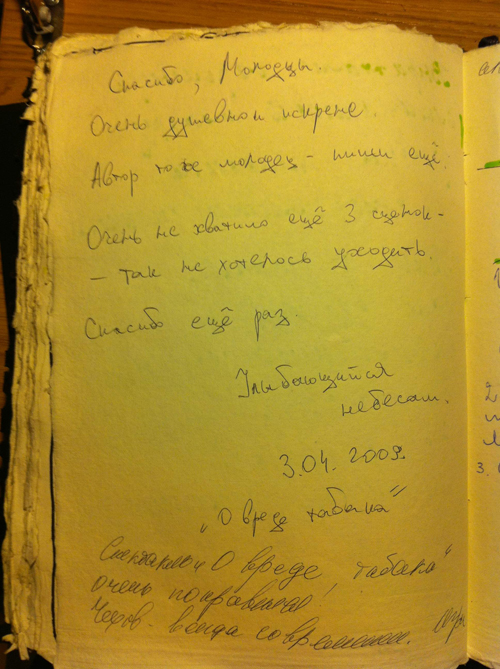 Спасибо, Молодцы.
Очень душевно и искрене.
Автор тоже молодец - пиши ещё.
Очень не хватило ещё 3 сценок -
- так не хотелось уходить.
Спасибо ещё раз.
Улыбающийся
небесам.
3.04. 2009.
„О вреде табака"
Спектакль „О вреде табака"
очень понравился!
Чехов - всегда современен.